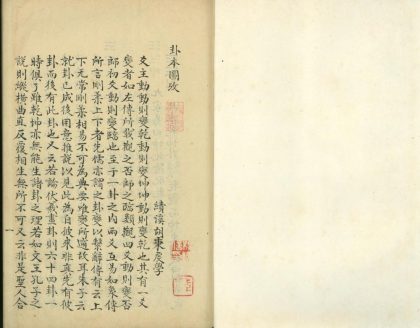 卦本圖攷
績溪胡秉虔學
爻主動動則變乾動則變坤坤動則變乾也其有一爻
變者如左傳所載觀之否師之臨類觀四爻動則變否
師初爻動則變臨也至于一卦之内兩爻互易如彖傳
所言剛柔上下者先儒亦謂之卦變以繫辭傳有云上
下无常剛柔相易不可為典要唯變所適故耳朱子云
就卦已成後用意推説以見此為自彼來非真先有彼
卦而後有此卦也又云若論伏羲畫卦則六十四卦一
時俱了雖乾坤亦無能生諸卦之理若如文王孔子之
説則縱横曲直反覆相生無所不可又云非是聖人合